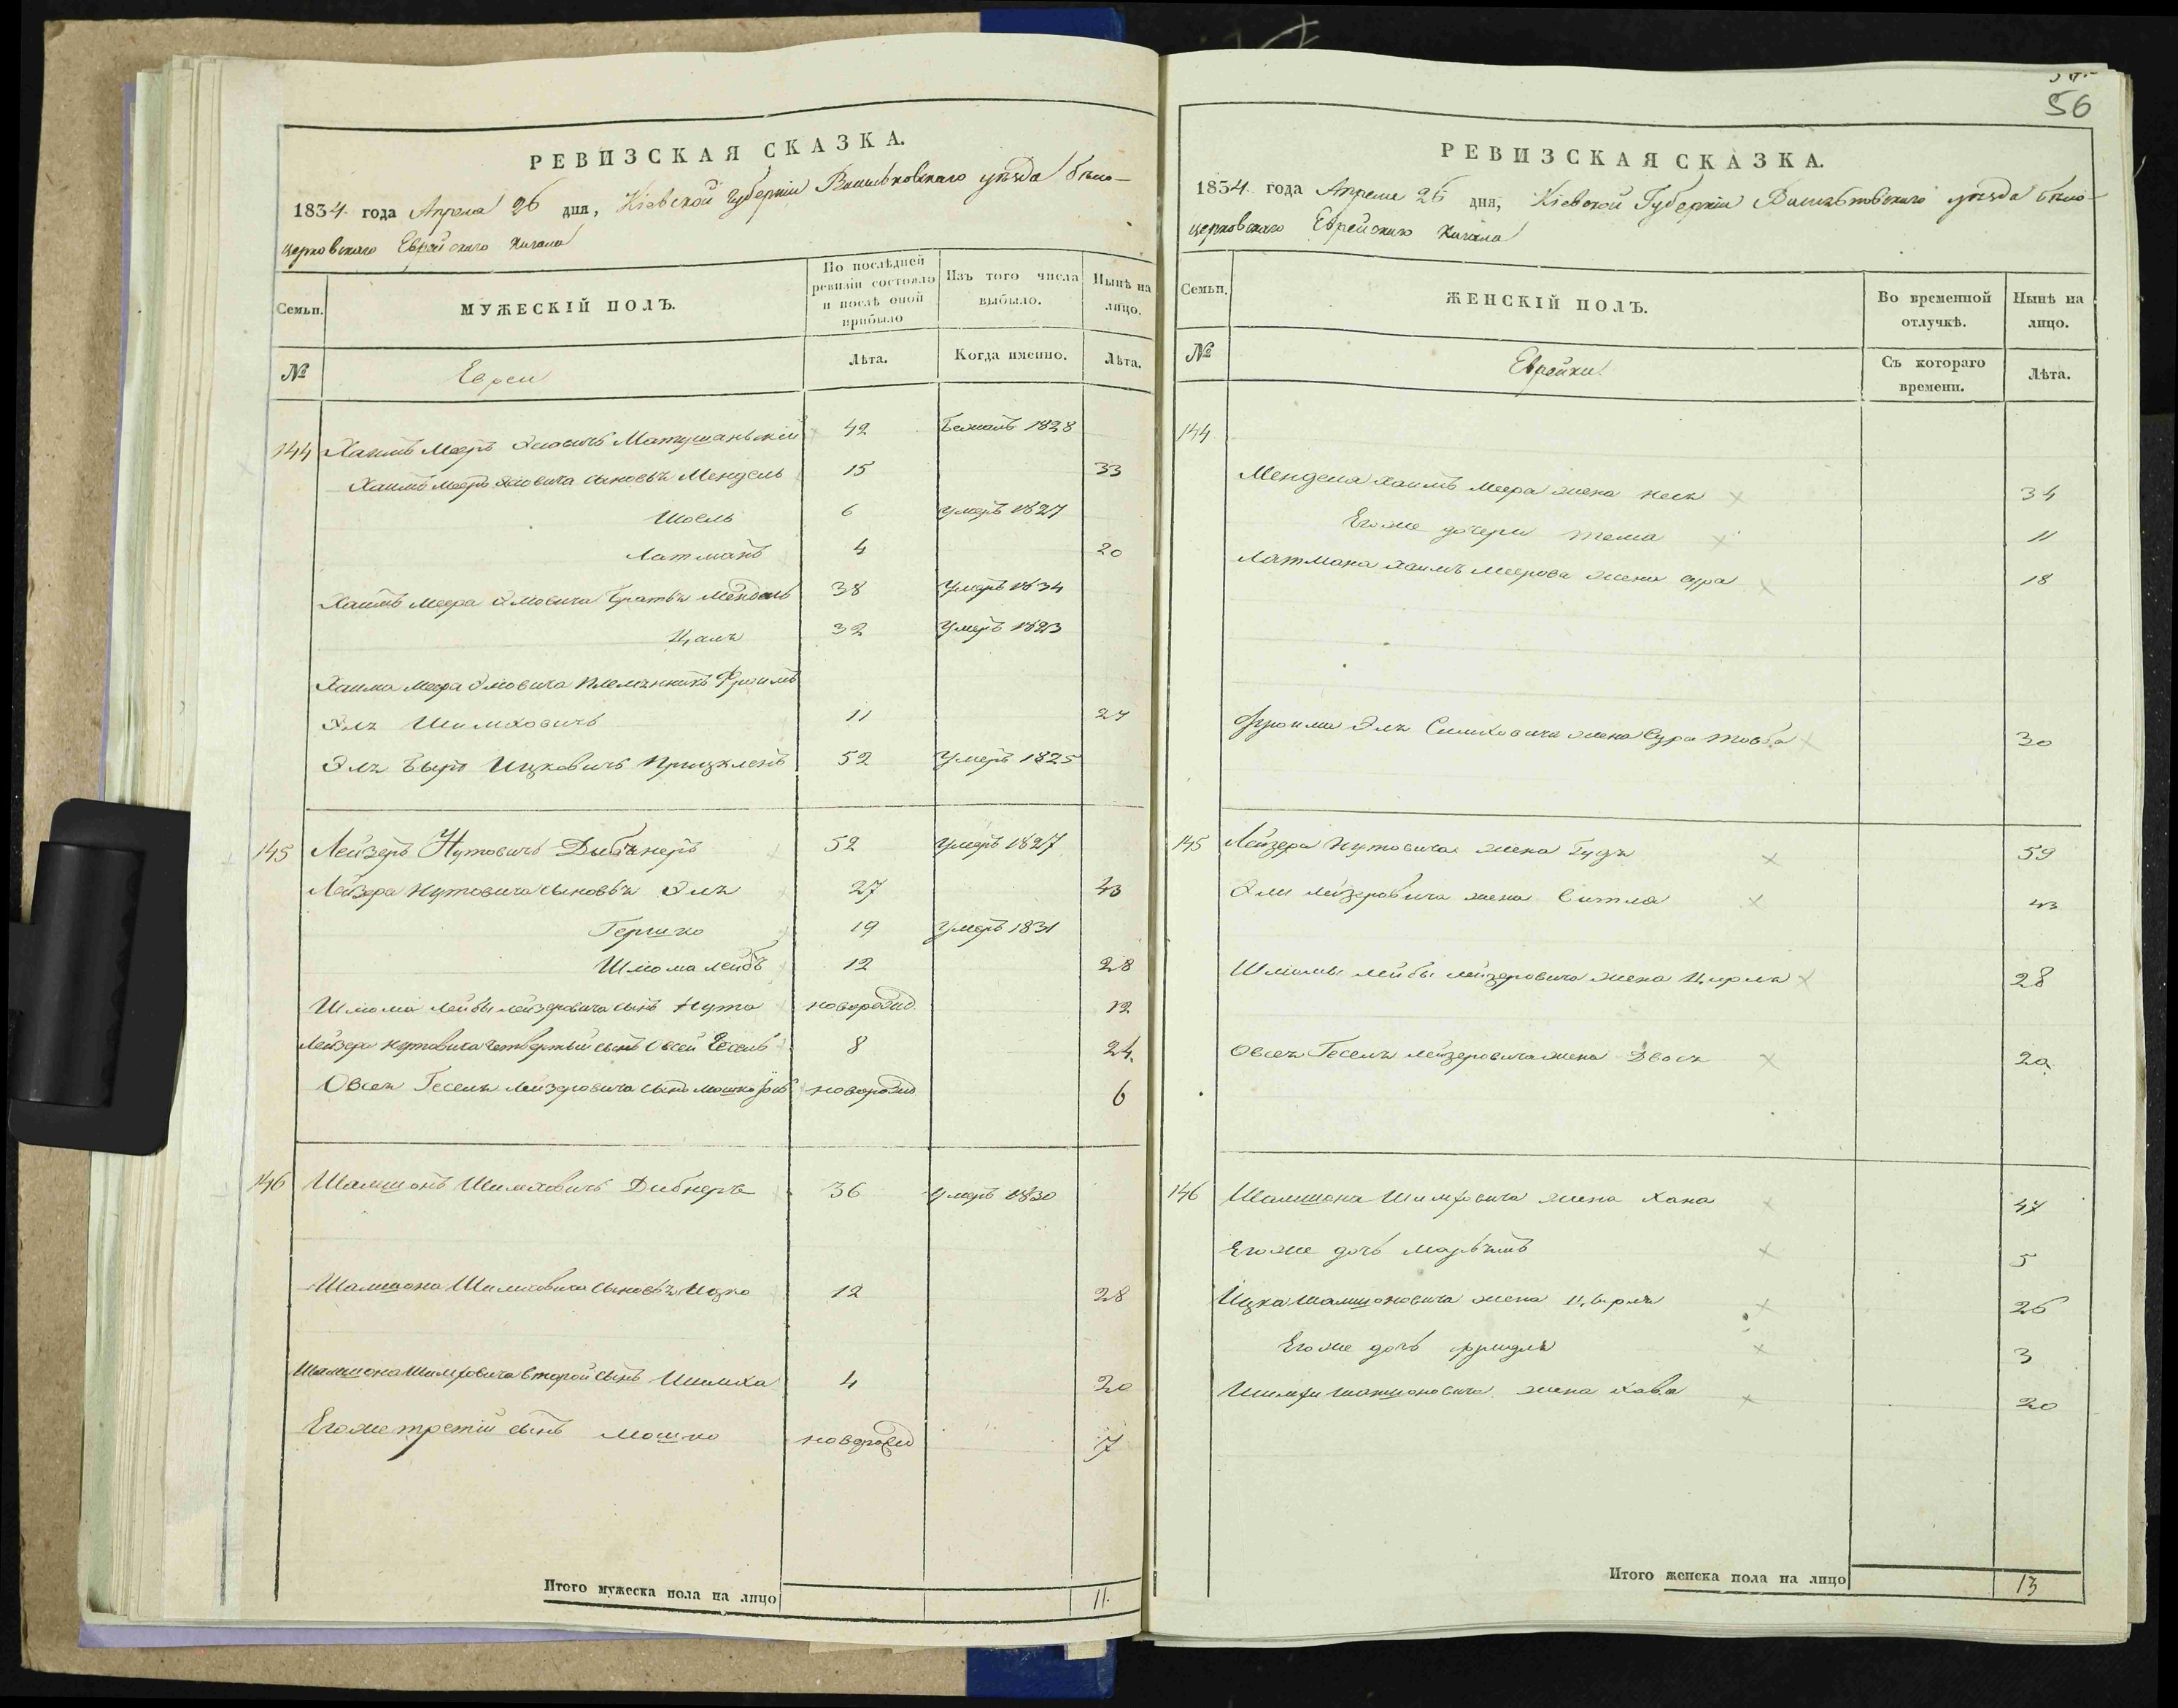 РЕВИЗСКАЯ СКАЗКА.
1834 года Апреля 26 дня, Кіевской Губерніи Васильковскаго уѣзда бѣло-
церковскаго Еврейскаго Кагала
Семьи.
МУЖЕСКІЙ ПОЛЪ.
По послѣдней ревизіи состояло и послѣ оной прибыло
Изъ того числа выбыло.
Нынѣ на лицо.
№
Евреи
Лѣта.
Когда именно.
Лѣта.
144 Хаимъ Мееръ 42 1828
Хаимъ Мееръ сыновья Мендель 15 33
6 умеръ 1827
Латманъ 4 20
Хаимъ Меера братья Мендель 38 Умеръ 1834
32 Умеръ 1823
Хаима Меера племянникъ Фроимъ
Эль Шимховичъ 11 27
Эль Ицковичъ 52 Умеръ 1825
145 Лейзеръ Нутовичъ Дибнеръ 52 умеръ 1827
Лейзера Нутовича сыновья Эль 27 43
Гершко 19 умеръ 1831
Шлиома лейбъ 12 28
Шлиома лейбы лейзеровича сынъ Нута новорожд 12
Лейзера Нутовича четвертый сынъ Овсей Гесель 8 24
Овсея Геселя Лейзеровича сынъ мошко новорожд 6
146 Шамшонъ Шимховичъ Дибнеръ 36 умеръ 1830
Шамшона Шимховича сыновья Ицко 12 28
Шамшона Шимховича второй сынъ Шимха 4 20
Его же третій сынъ мошко новорожд 7
Итого мужеска пола на лицо 11.
56
РЕВИЗСКАЯ СКАЗКА.
1834 года Апреля 26 дня, Кіевской Губерніи Васильковскаго уѣзда бѣло-
церковскаго Еврейскаго Кагала
Семьи.
ЖЕНСКІЙ ПОЛЪ.
Во временной отлучкѣ.
Нынѣ на лицо.
№
Еврейки
Съ котораго времени.
Лѣта.
144
Менделя Хаимъ Меера жена 34
Его же дочери 11
Латмана Хаимъ Меерова жена сура 18
Фроима Эля Симховича жена Сура Товба 30
145 Лейзера Нутовича жена 59
Эли лейзеровича жена 43
Шлиомы лейбы лейзеровича жена Цирля 28
Овсея Геселя лейзеровича жена Двося 20
146 Шамшона Шимховича жена Хана 47
Его же дочь 5
Ицка Шамшоновича жена Цирля 26
Его же дочь фридля 3
Шимхи Шамшоновича жена хава 20
Итого женска пола на лицо 13